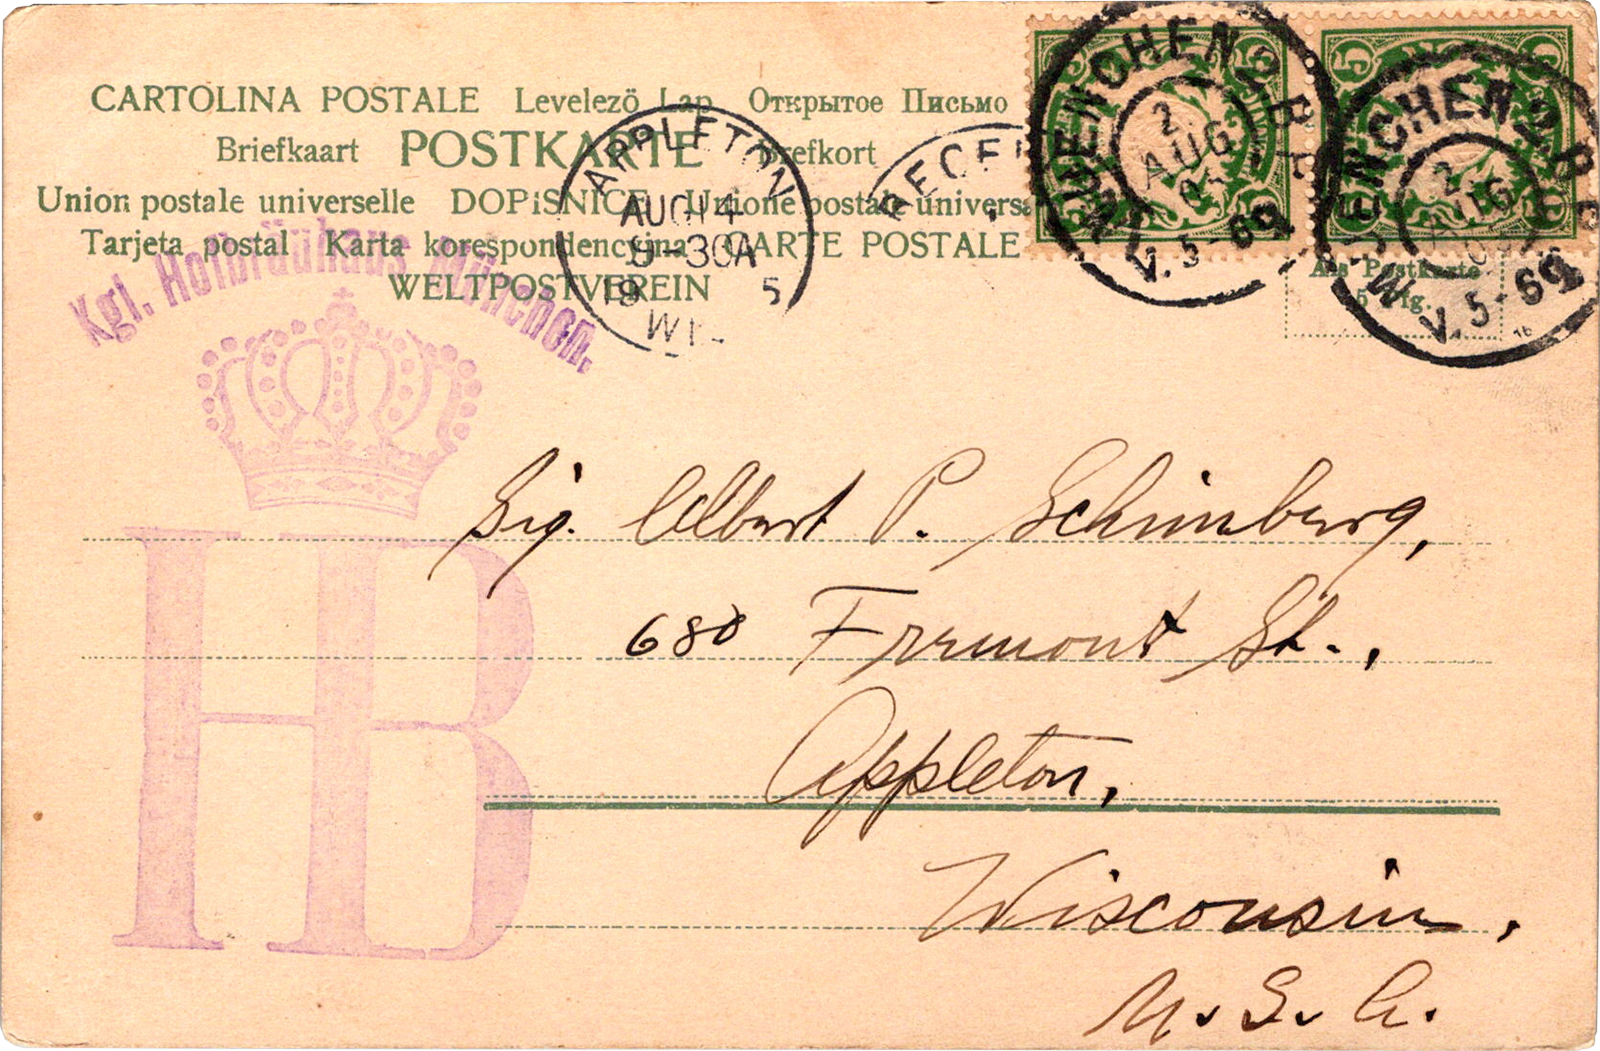 CARTOLINA POSTALE Levelezö Lap Открытое Письмо
Briefkaart POSTKARTE Brefkort
Union postale universelle DOPiSNICE Unione postale universa
Tarjeta postal Karta korespondencyjna CARTE POSTALE
WELTPOSTVEREIN
APPLETON
AUG 14
9-30A
19 5
WI
RECEI
5 5
MUENCHEN 1 B.P.
2
AUG
05
V. 5-6
5 5
MUENCHEN 1 B.P.
2
AUG
05
V. 5-6
Als Postkarte
5 Pfg.
16
Kgl. Hofbräuhaus München.
HB
Sig. Albert P. Schimberg,
680 Fremont St.,
Appleton,
Wisconsin,
U. S. A.